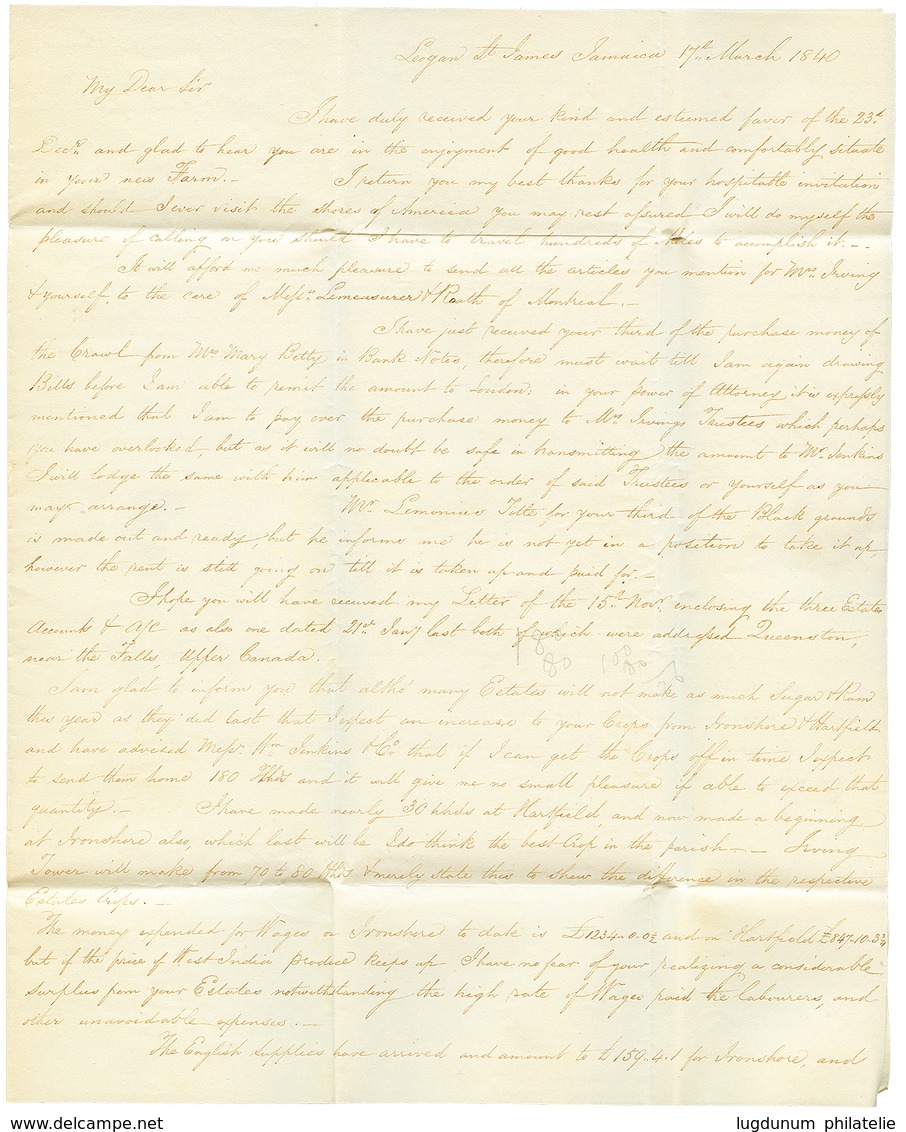 Logan St James Jamaica 17th March 1840
My Dear Sir
I have duly received your kind and esteemed favor of the 23d
Decr. and glad to hear you are in the enjoyment of good health and comfortably situate
in your new Farm.- I return you my best thanks for your hospitable invitation
and should I ever visit the shores of America you may rest assured I will do myself the
pleasure of calling on you should I have to travel hundreds of Miles to accomplish it.--
It will afford me much pleasure to send all the articles you mention for Mrs. Irving
& yourself, to the care of Messrs. Lemesurer & Routh of Montreal.-
I have just received your third of the purchase money of
the Crawl from Mrs Mary Petty in Bank Notes, therefore must wait till I am again drawing
Bills before I am able to remit the amount to London; in your power of Attorney it is expressly
mentioned that I am to pay over the purchase money to Mrs Irvings Trustees which perhaps
you have overlooked, but as it will no doubt be safe in transmitting the amount to Mr. Jenkins
I will lodge the same with him applicable to the order of said Trustees or yourself as you
may arrange.- Mr. Title for your third of the Black grounds
is made out and ready, but he informs me he is not yet in a position to take it up
however the rent is still going on till it is taken up and paid for.-
I hope you will have received my Letter of the 15th Novr. enclosing the three Estates
Accounts & A/C as also one dated 21st Jany last both of which were addressed Queenston,
near the Falls, Upper Canada.
80 100 80
I am glad to inform you that altho' many Estates will not make as much Sugar & Rum
this year as they did last that I expect an increase to your Crops from Ironshore & Hartfield
and have advised Messrs. Wm Jenkins & Co that if I can get the Crops off in time I expect
to send them home 180 Hhds and it will give me no small pleasure if able to exceed that
quantity.- I have made nearly 30 hhds at Hartfield, and now made a beginning
at Ironshore also, which last will be I do think the best Crop in the parish-- Irving
Tower will make from 70 to 80 Hhds & merely state this to shew the difference in the respective
Estates Crops.-
The money expended for Wages on Ironshore to date is £1234..0..0½ and on Hartfield £847-10-3¾
but if the price of West India produce keeps up I have no fear of your realizing a considerable
surplus from your Estates notwithstanding the high rate of Wages paid the labourers, and
other unavoidable expenses.-
The English supplies have arrived and amount to £159..4..1 for Ironshore, and
www.delcampe.net
lugdunum philatelie